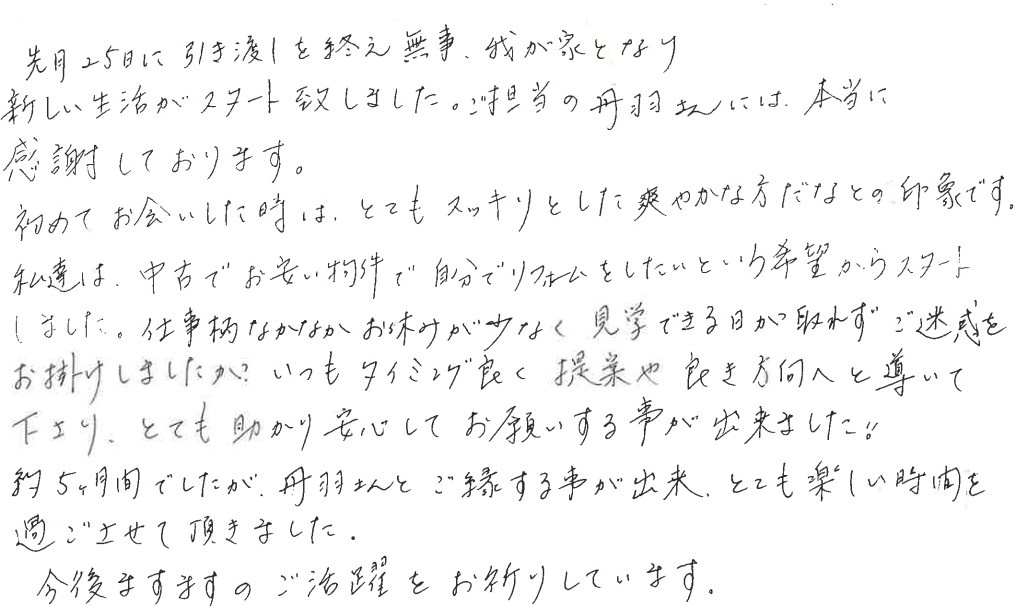 先月25日に引き渡しを終え無事、我が家となり
新しい生活がスタート致しました。ご担当の丹羽さんには、本当に
感謝しております。
初めてお会いした時は、とてもスッキリとした爽やかな方だなとの印象です。
私達は、中古でお安い物件で自分でリフォームをしたいという希望からスタート
しました。仕事柄なかなかお休みが少なく見学できる日が取れずご迷惑を
お掛けしましたが、いつもタイミング良く提案や良き方向へと導いて
下さり、とても助かり安心してお願いする事が出来ました!!
約5ヶ月間でしたが、丹羽さんとご縁する事が出来、とても楽しい時間を
過ごさせて頂きました.
今後ますますのご活躍をお祈りしています.